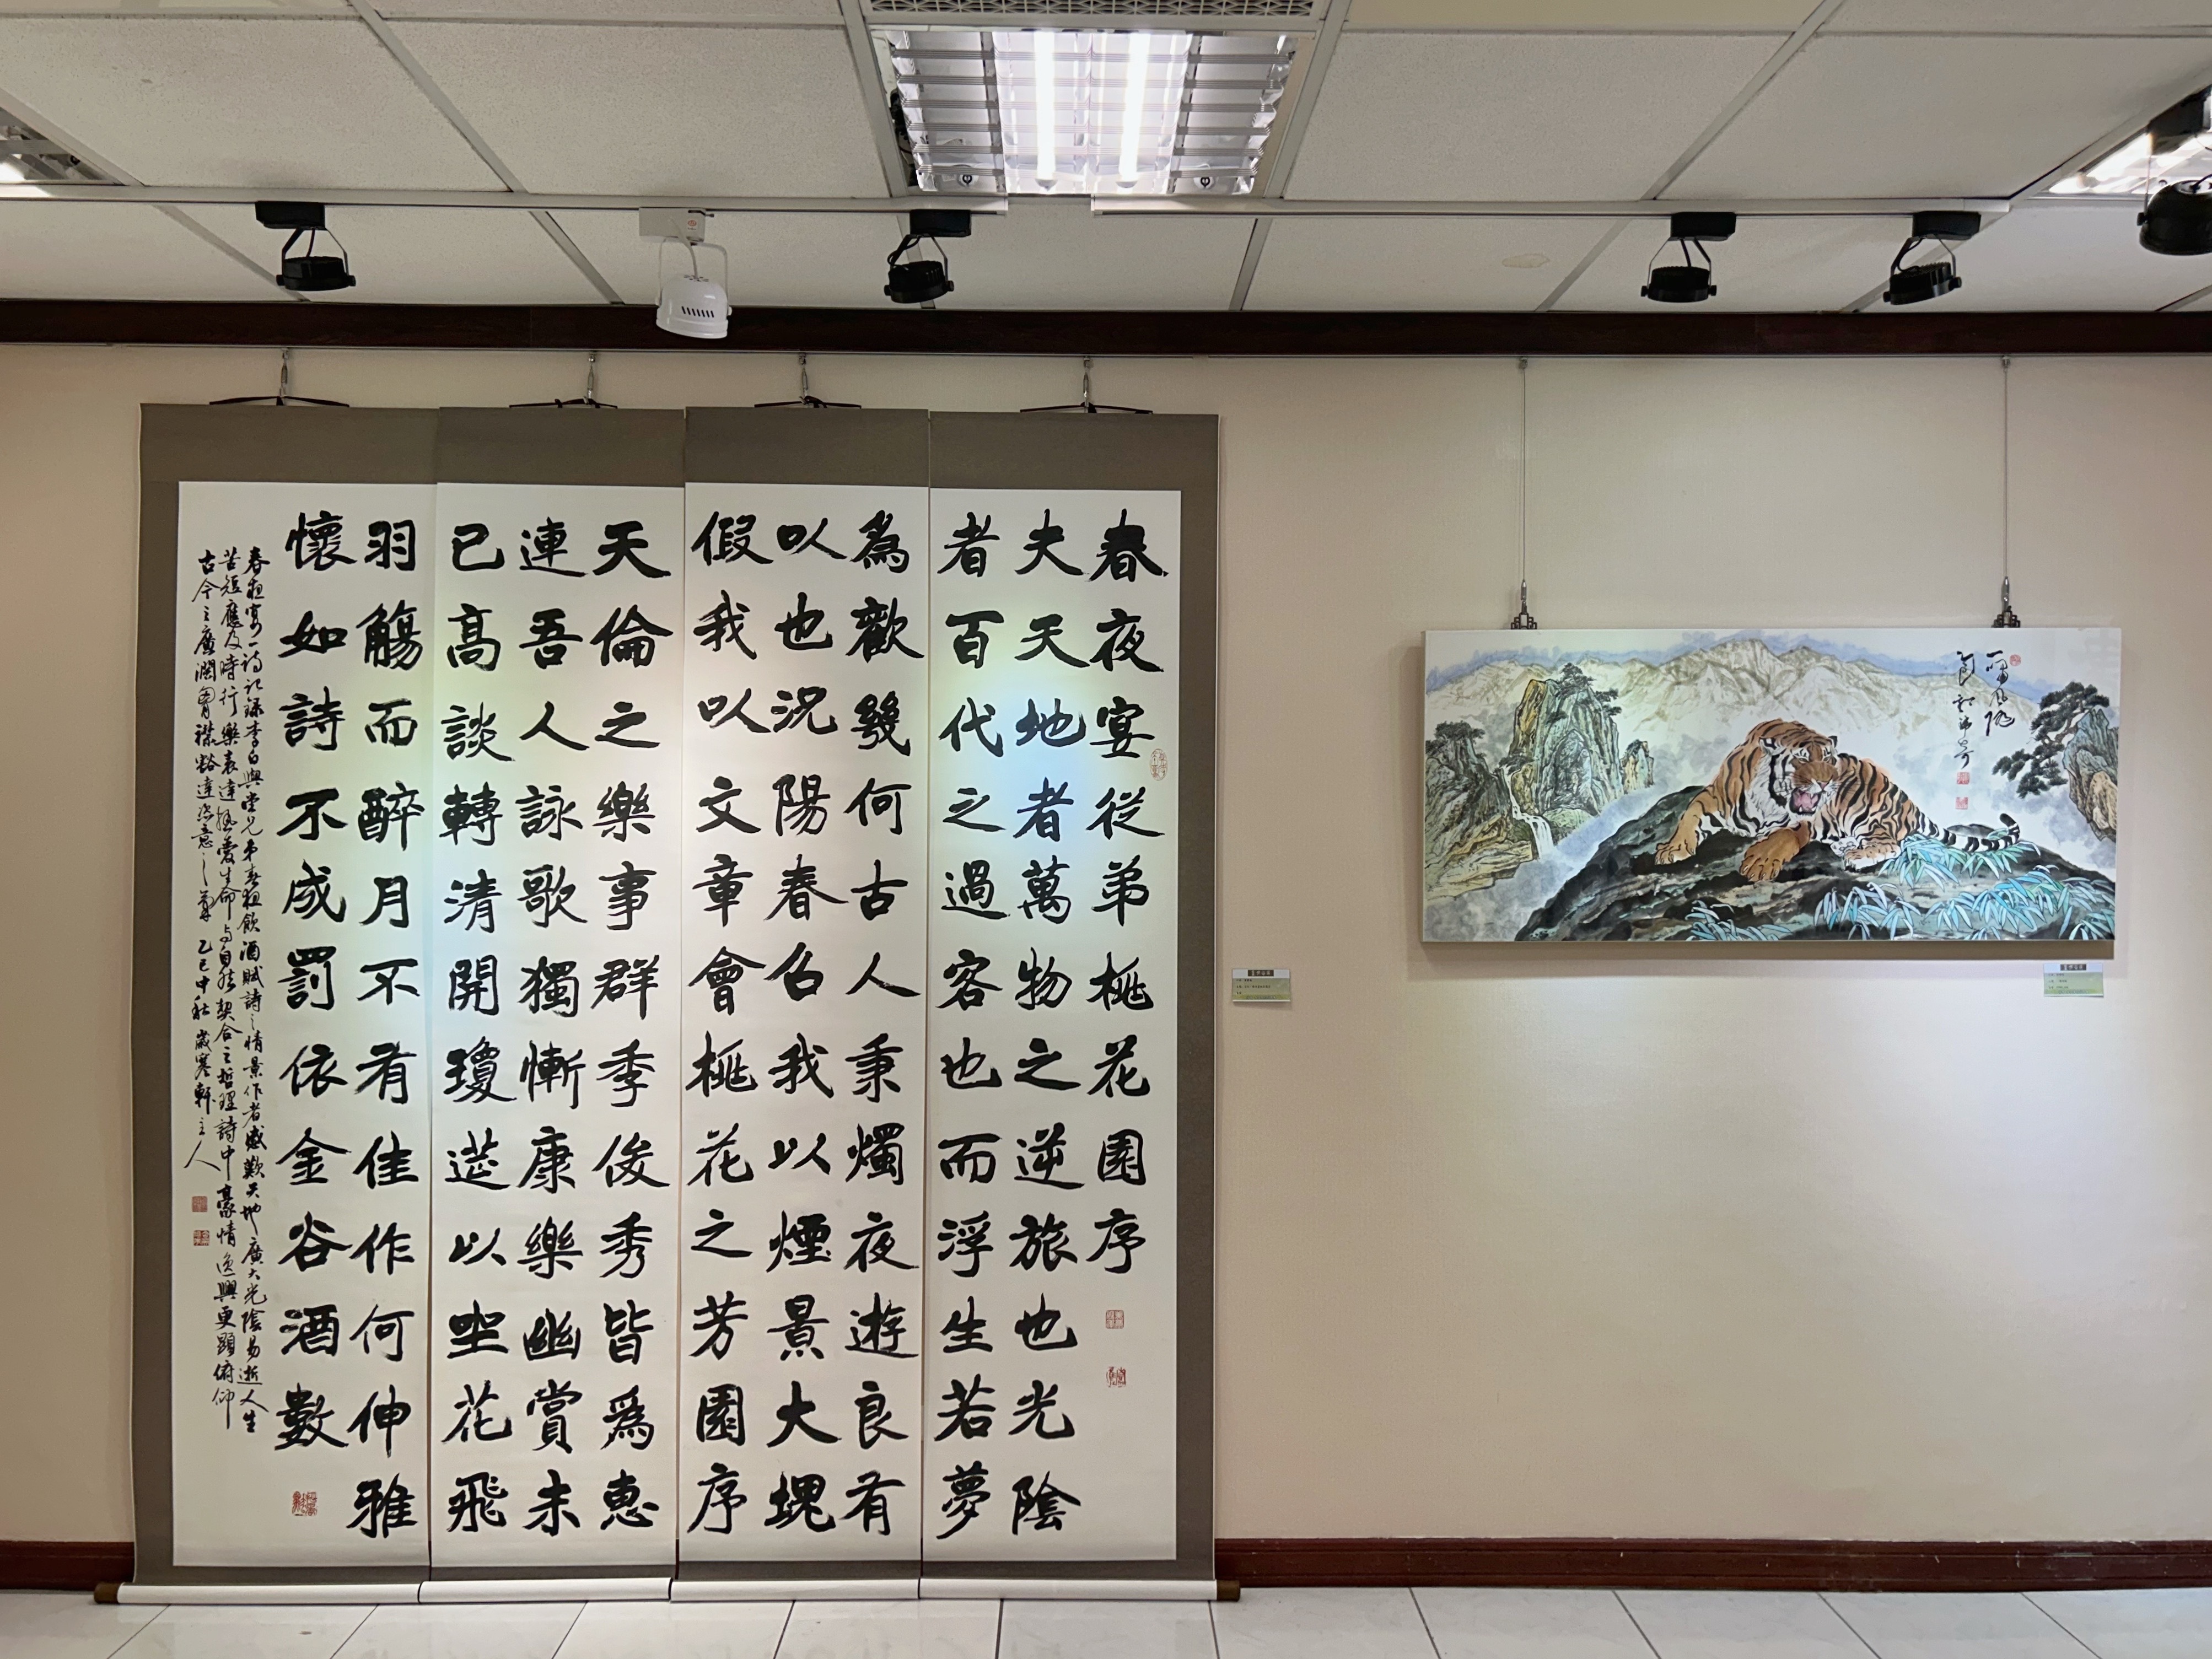 春夜宴從弟桃花園序
夫天地者萬物之逆旅也光陰
者百代之過客也而浮生若夢
為歡幾何古人秉燭夜遊良有
以也況陽春召我以煙景大塊
假我以文章會桃花之芳園序
天倫之樂事群季俊秀皆為惠
連吾人詠歌獨慚康樂幽賞未
已高談轉清開瓊筵以坐花飛
羽觴而醉月不有佳作何伸雅
懷如詩不成罰依金谷酒數
春夜宴一詩記錄李白與堂兄弟春夜飲酒賦詩之情景作者感歎天地廣大光陰易逝人生
苦短應及時行樂表達熱愛生命與自然契合之哲理詩中豪情逸興更顯俯仰
古今之廣闊胸襟豁達詩意之尊 乙巳中秋 歲寒軒主人
一嘯風